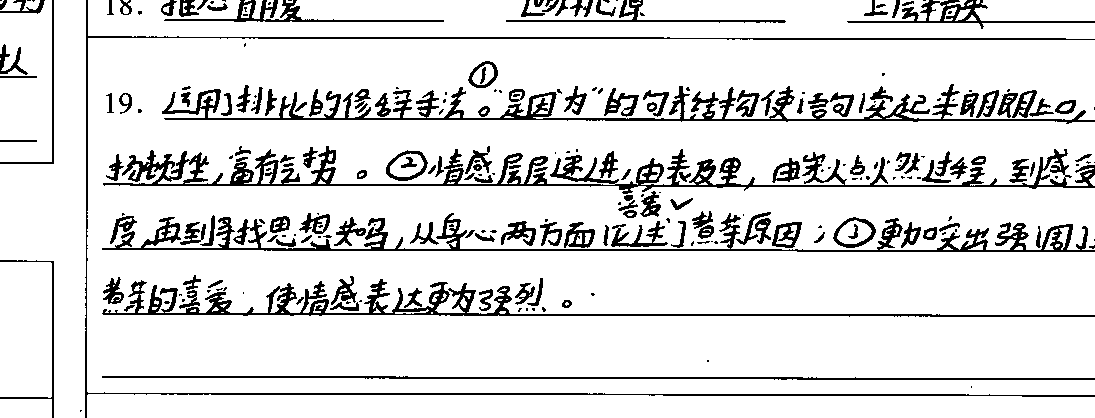 18. 推己
19. 运用了排比的修辞手法。①“是因为”的句式结构使语句读起来朗朗上口,
扬顿挫,富有气势。②情感层层递进,由表及里,由炭火点火燃过程,到感受
喜爱✓
度,再到寻找思想共鸣,从身心两方面论述了煮茶原因;③更加突出强调了
煮茶的喜爱,使情感表达更为强烈。